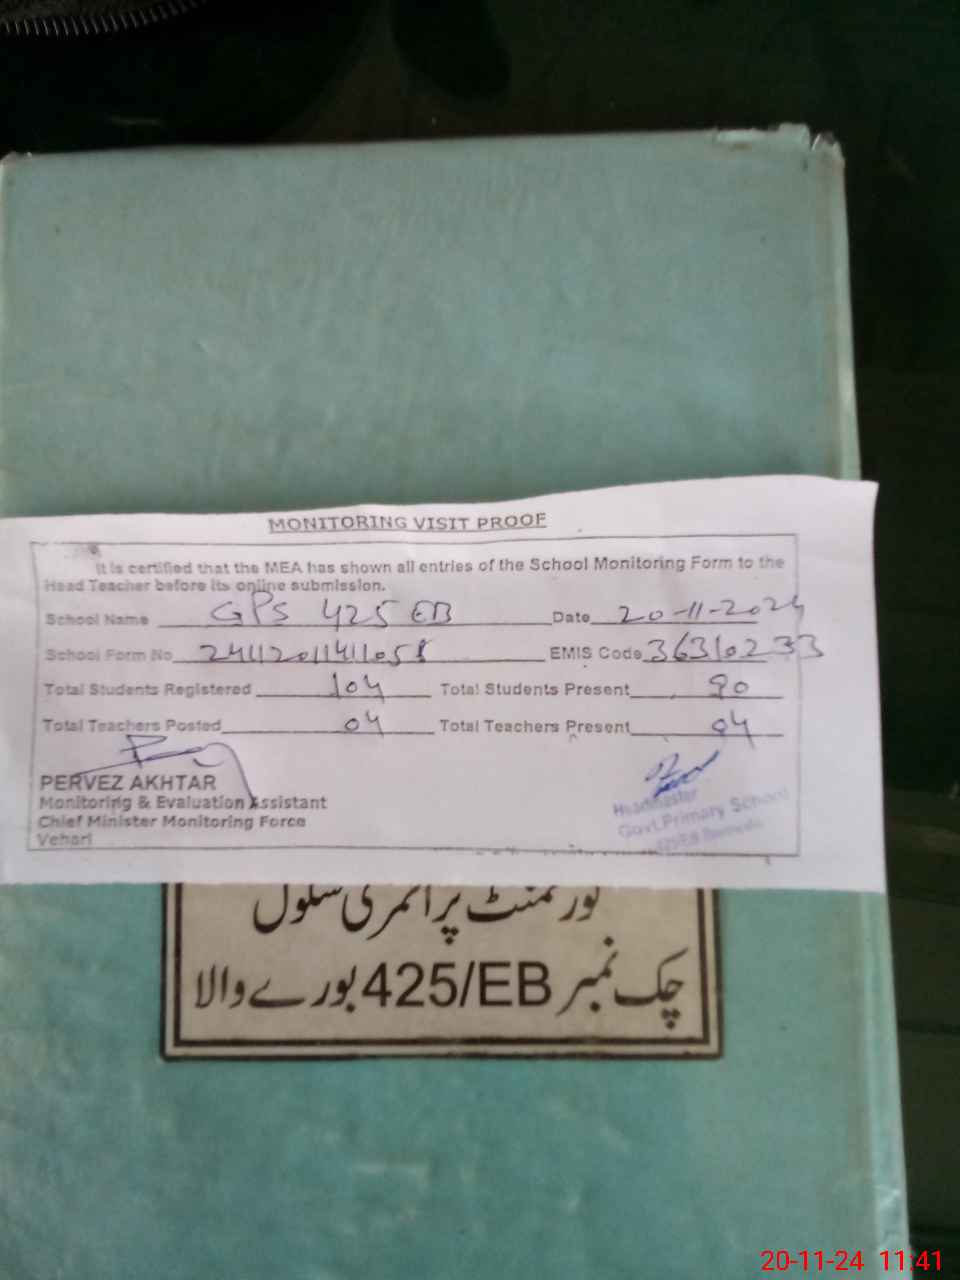 MONITORING VISIT PROOF
It is certified that the MEA has shown all entries of the School Monitoring Form to the
Head Teacher before its online submission.
School Name GPS 425 EB Date 20-11-2024
School Form No EMIS Code 36310233
Total Students Registered 104 Total Students Present 90
Total Teachers Posted 04 Total Teachers Present 04
PERVEZ AKHTAR
Monitoring & Evaluation Assistant
Chief Minister Monitoring Force
Vehari
Headmaster
Govt.Primary School
425/EB
گورنمنٹ پرائمری سکول
چک نمبر 425/EB بورے والا
20-11-24 11:41